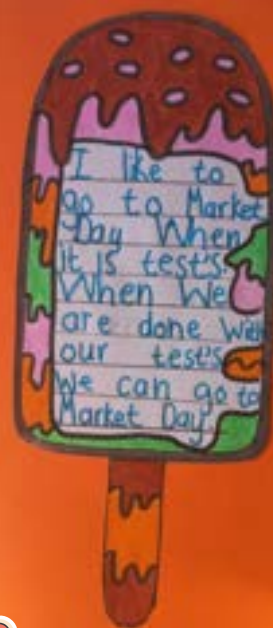 I like to
go to Market
Day When
it is test's.
When We
are done With
our test's
We can go to
Market Day.